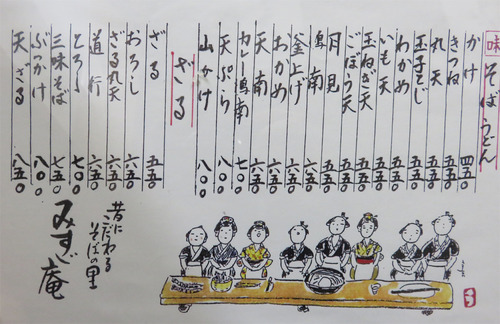 味 そばうどん
かけ 四五〇
きつね 五五〇
丸天 五五〇
玉子とじ 五五〇
わかめ 五五〇
いも天 五五〇
玉ねぎ天 五五〇
ごぼう天 五五〇
月見 五五〇
鳥南 六五〇
釜上げ 六五〇
おかめ 六五〇
天南 六五〇
カレー鳥南 七〇〇
天ぷら 八〇〇
山かけ 八〇〇
ざる
ざる 五五〇
おろし 六五〇
ざる丸天 六五〇
道行 六五〇
とろろ 七〇〇
三味そば 七五〇
ぶっかけ 八〇〇
天ざる 八五〇
昔に
こだわる
そばの里
みすゞ庵